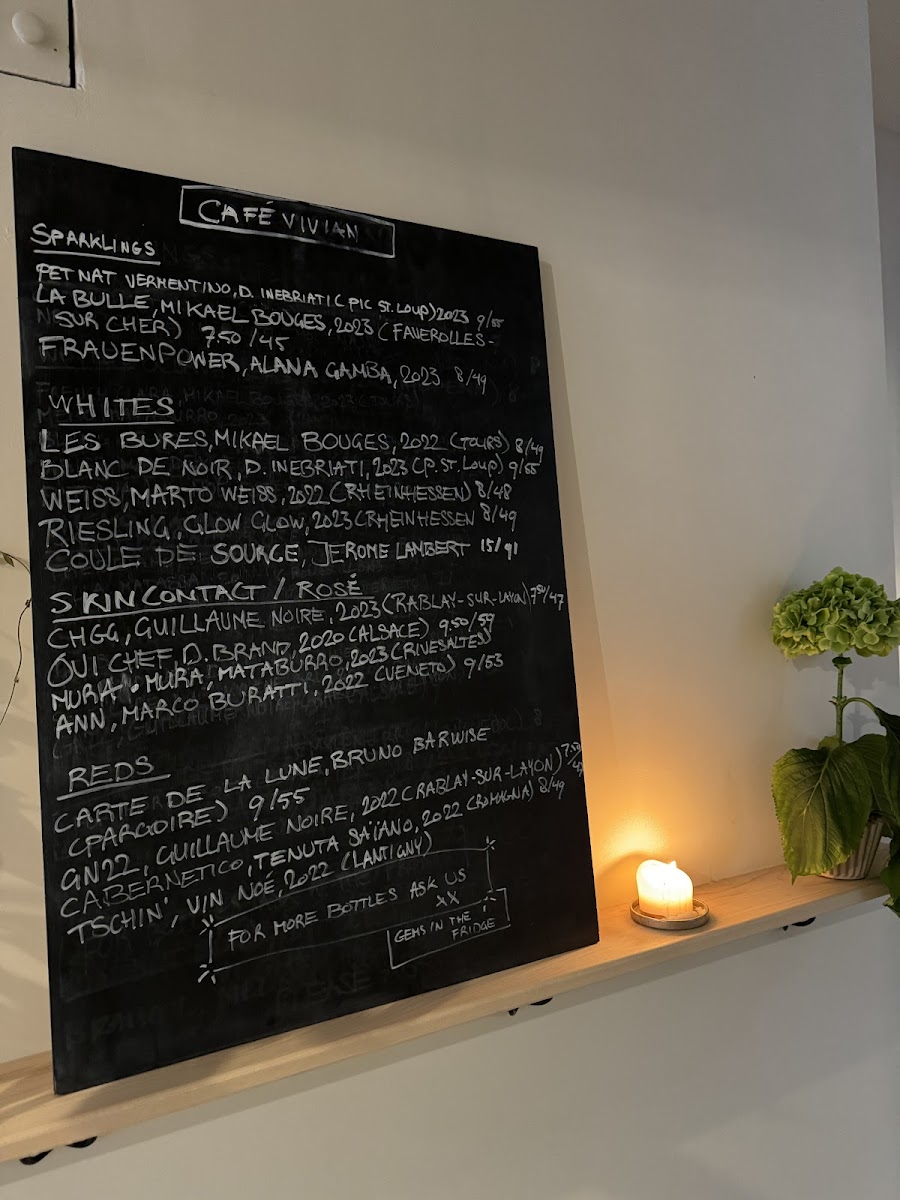 CAFÉ VIVIAN
SPARKLINGS
PET NAT VERMENTINO, D. INEBRIATI ( PIC ST. LOUP) 2023 9/55
LA BULLE, MIKAEL BOUGES, 2023 ( FAVEROLLES-
SUR CHER) 7.50/45
FRAUENPOWER, ALANA GAMBA, 2023 8/49
WHITES
LES BURES, MIKAEL BOUGES, 2022 (TOURS) 8/49
BLANC DE NOIR, D. INEBRIATI, 2023 (P. ST. LOUP) 9/55
WEISS, MARTO WEISS, 2022 (RHEINHESSEN) 8/48
RIESLING, GLOW GLOW, 2023 (RHEINHESSEN 8/49
COULE DE SOURCE, JEROME LAMBERT 15/91
SKINCONTACT / ROSÉ
CHGG, GUILLAUME NOIRE, 2023 (RABLAY-SUR-LAYON) 7.50/47
OUI CHEF D. BRAND, 2020 (ALSACE) 9.50/59
MURA•MURA, MATABURRO, 2023 (RIVESALTES)
ANN, MARCO BURATTI, 2022 (VENETO) 9/53
REDS
CARTE DE LA LUNE, BRUNO BARWISE
(PARGOIRE) 9/55
GN22, GUILLAUME NOIRE, 2022 (RABLAY-SUR-LAYON) 7.50/47
CABERNETICO, TENUTA SAÍANO, 2022 (ROMAGNA) 8/49
TSCHIN', VIN NOÉ, 2022 (LANTIGNY)
FOR MORE BOTTLES ASK US
XX
GEMS IN THE
FRIDGE